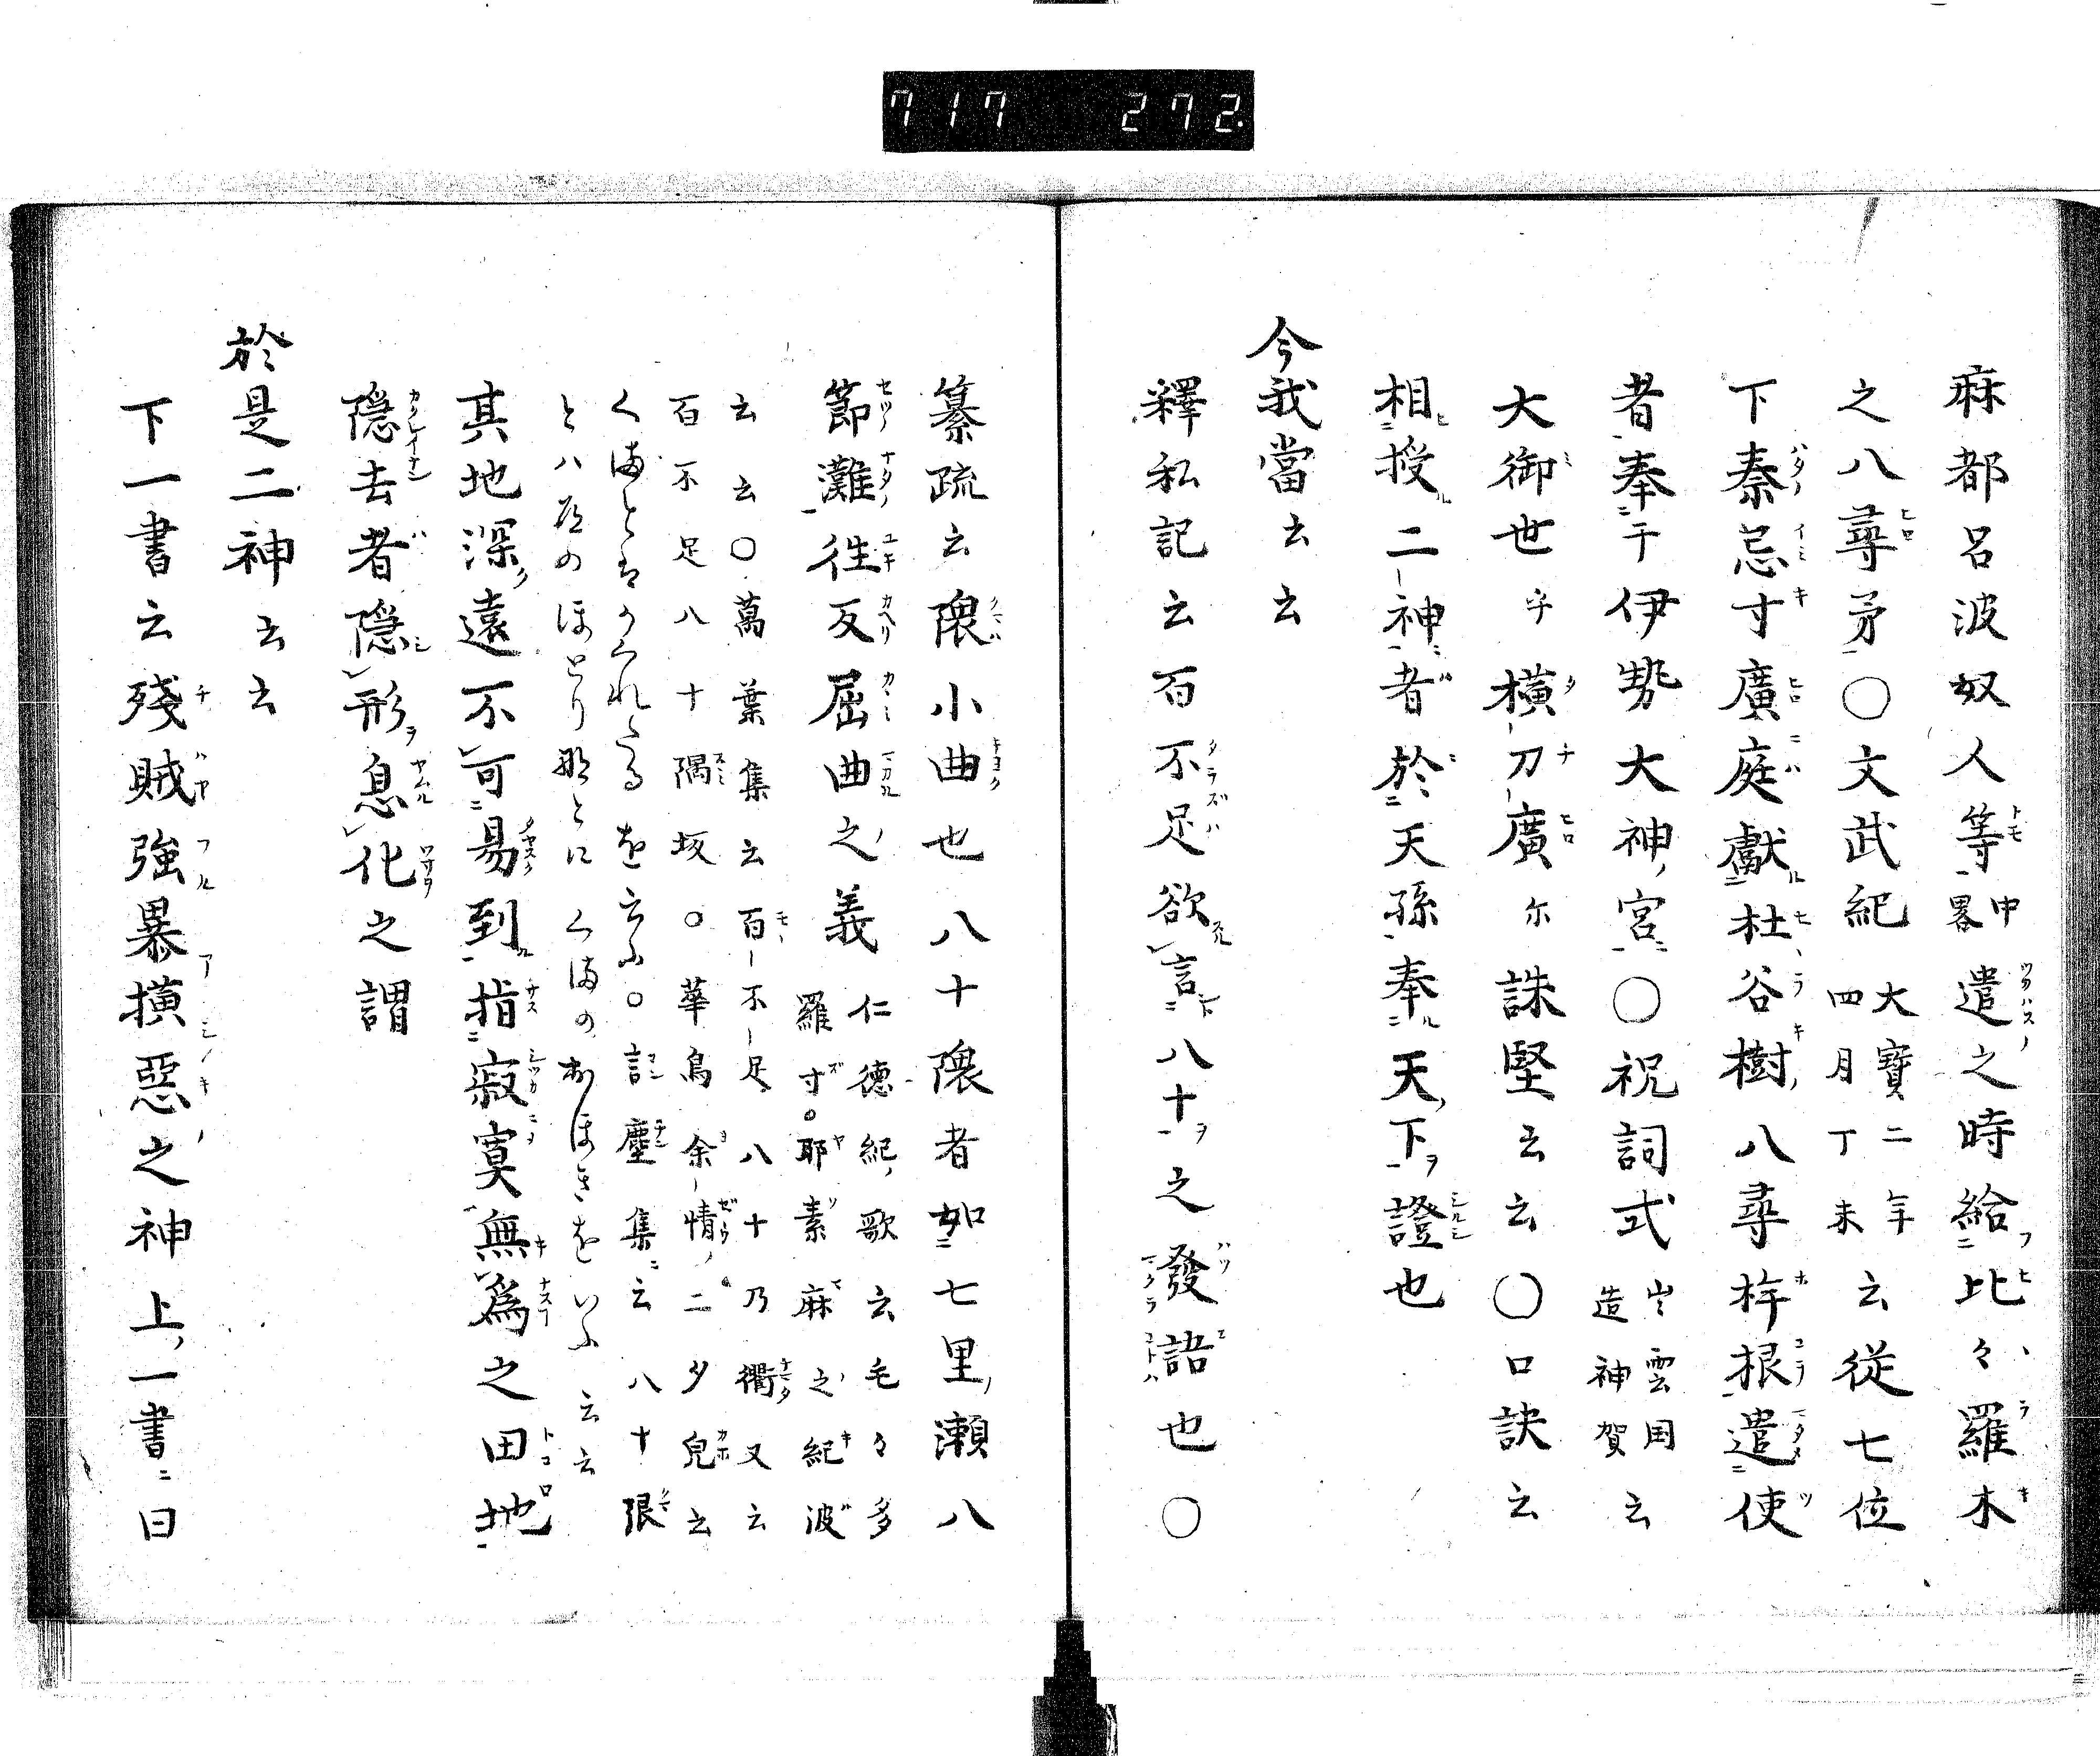 717 272.
麻都呂波奴人等中畧遣之時給比々羅木
之八尋矛〇文武紀大寶二年四月丁未云従七位
下秦忌寸廣庭獻杜谷樹八尋桙根遣使
者奉于伊勢大神宮〇祝詞式出雲国造神賀云
大御世乎横刀廣尓誅堅云云〇口訣云
相授二神者於天孫奉天下證也
今我當云云
釋私記云百不足欲言八十之發語也〇
纂疏云隈小曲也八十隈者如七里瀬八
節灘往反屈曲之義仁德紀歌云毛々多羅寸〇耶素麻之紀波
云云〇萬葉集云百不足八十乃衢又云
百不足八十隅坂〇華鳥余情二夕皃云
くまとはかくれたるを云ふ〇詞塵集云八十隈
とハ道のほとり那とにくまのおほきをいふ云云
其地深遠不可易到指寂寞無爲之田地
隠去者隠形息化之謂
於是二神云云
下一書云殘賊強暴横惡之神上一書曰